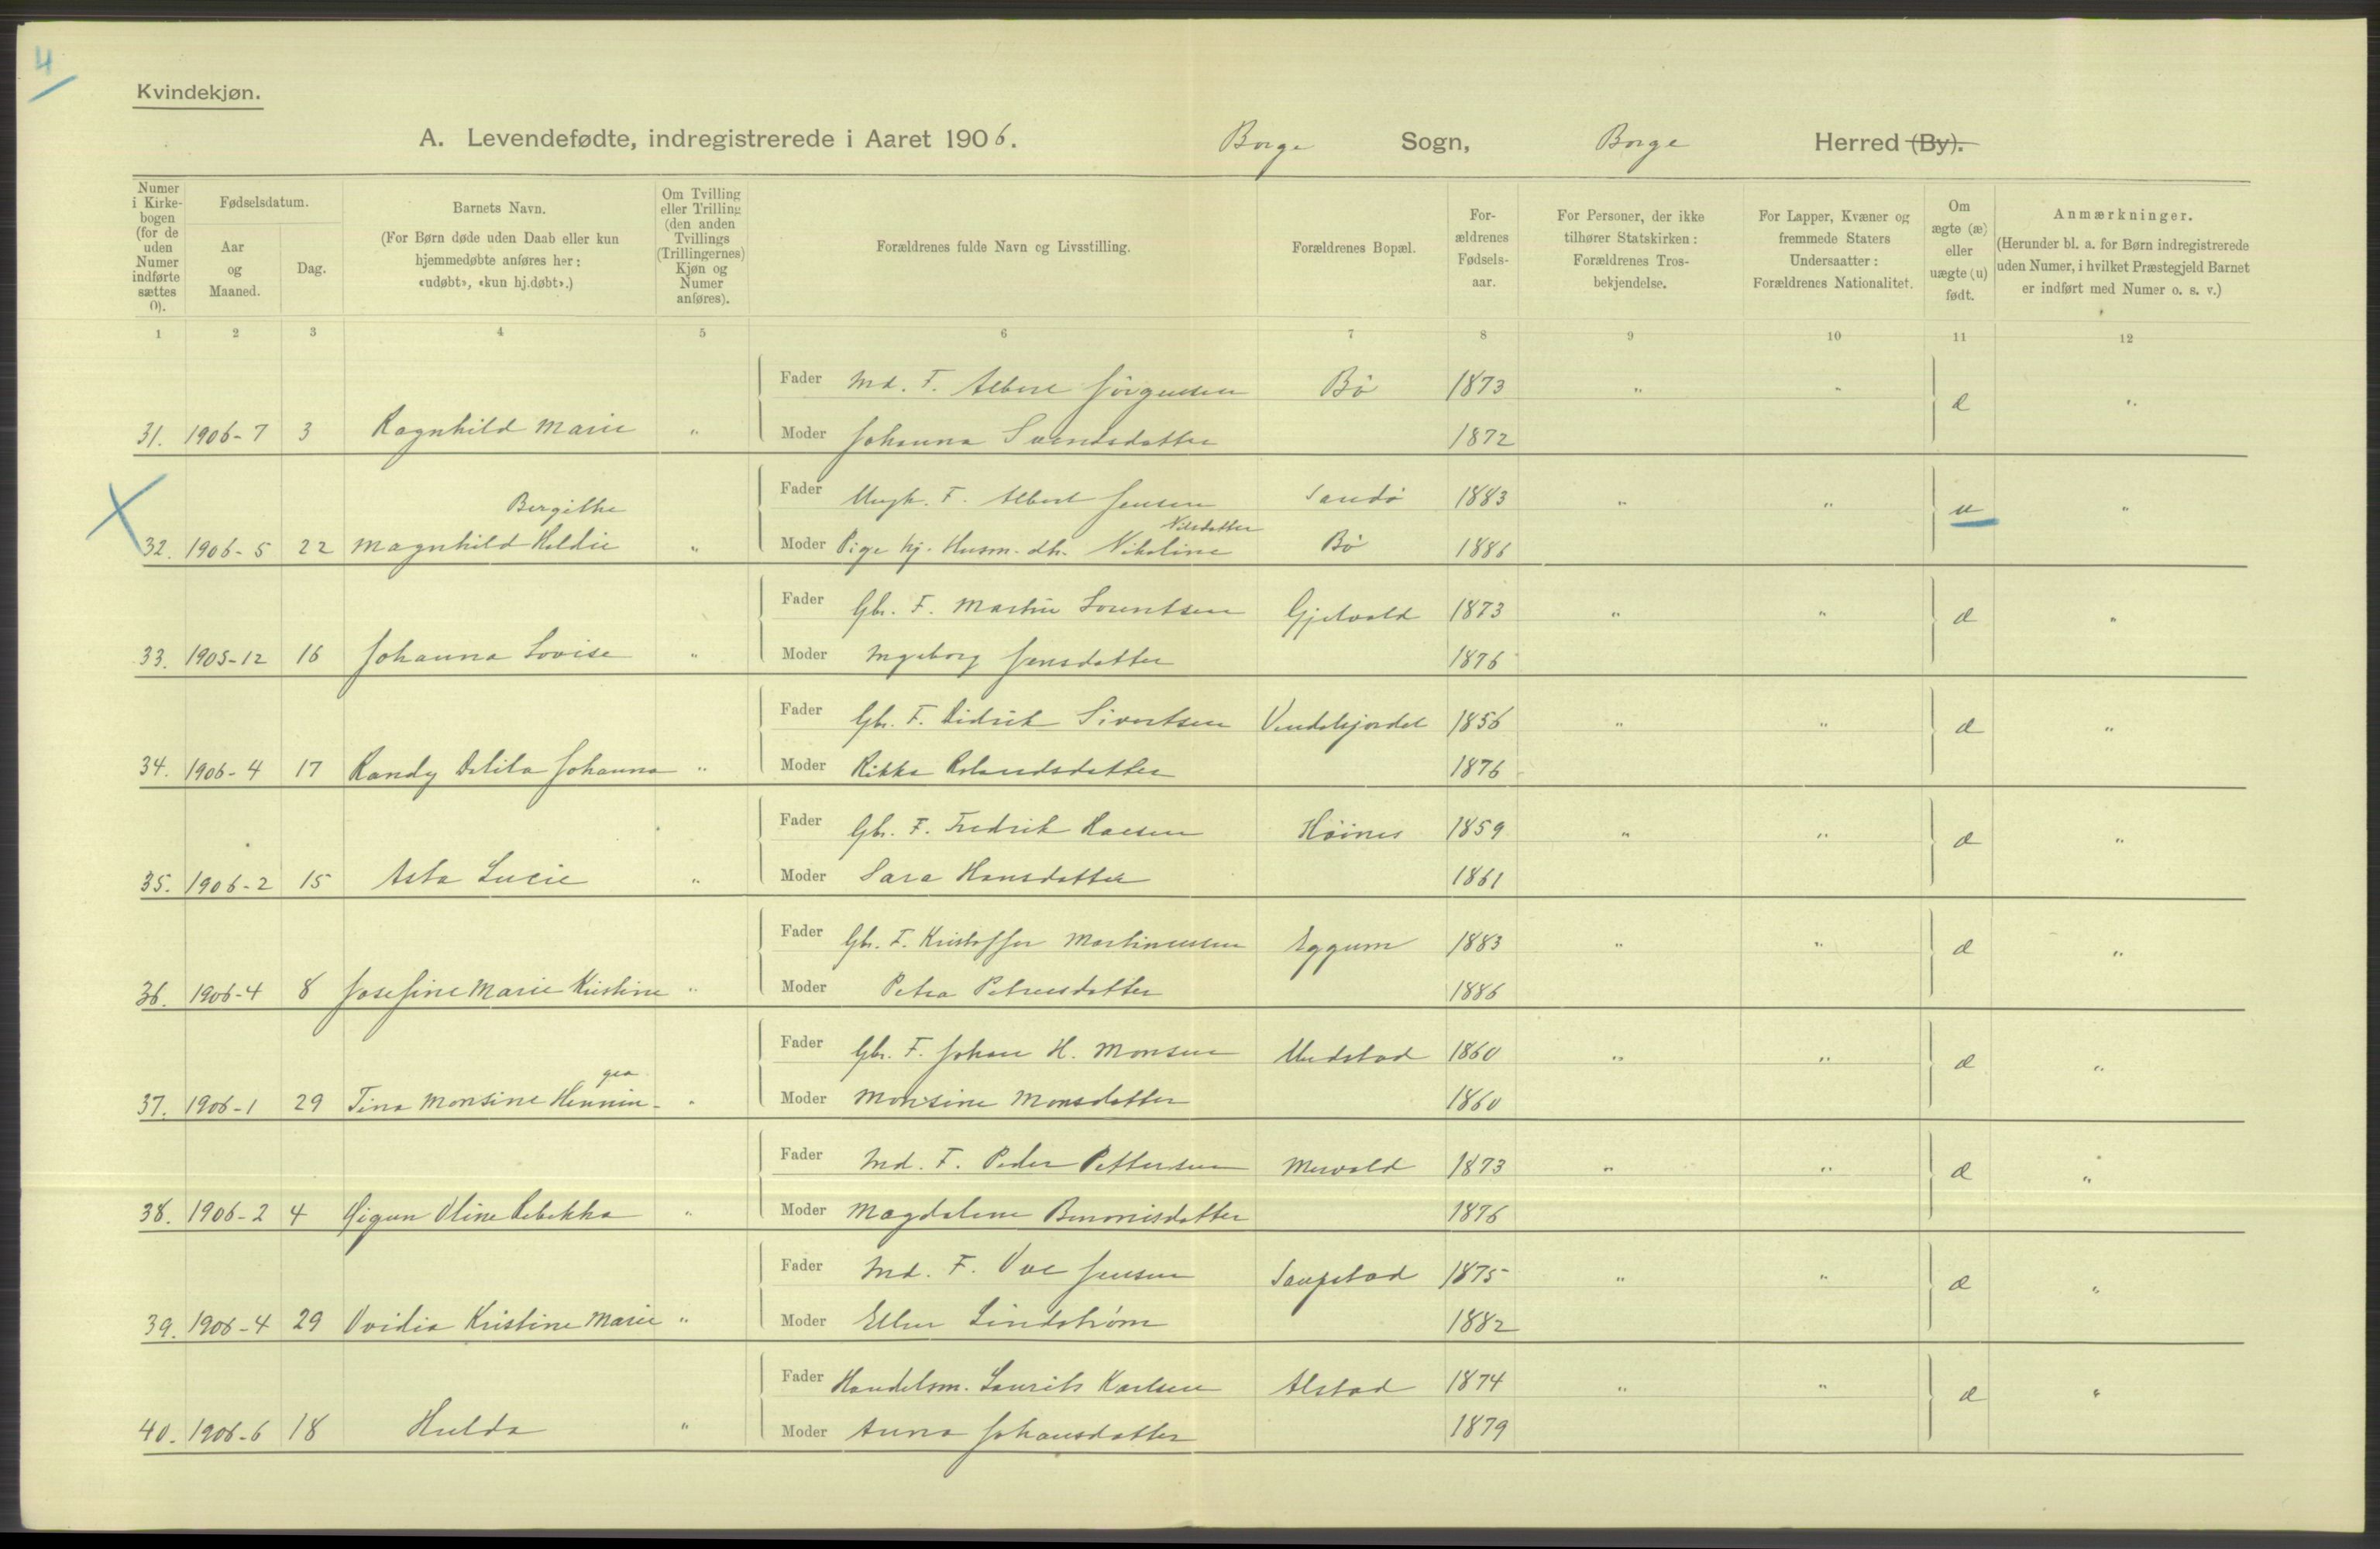 4
Kvindekjøn.
A. Levendefødte, indregistrerede i Aaret 1906. Borge Sogn, Borge Herred (By).
Numer i Kirke-bogen (for de uden Numer indførte sættes 0).
Fødselsdatum.
Aar og Maaned.
Dag.
Barnets Navn.
(For Børn døde uden Daab eller kun hjemmedøbte anføres her: «udøbt», «kun hj.døbt».)
Om Tvilling eller Trilling (den anden Tvillings (Trillingernes) Kjøn og Numer anføres).
Forældrenes fulde Navn og Livsstilling.
Forældrenes Bopæl.
For-ældrenes Fødsels-aar.
For Personer, der ikke tilhører Statskirken: Forældrenes Tros-bekjendelse.
For Lapper, Kvæner og fremmede Staters Undersaatter: Forældrenes Nationalitet.
Om ægte (æ) eller uægte (u) født.
Anmærkninger.
(Herunder bl. a. for Børn indregistrerede uden Numer, i hvilket Præstegjeld Barnet er indført med Numer o. s. v.)
1 2 3 4 5 6 7 8 9 10 11 12
Fader Ind. F. Albert Jörgensen Bö 1873 " " æ "
31. 1906-7 3 Ragnhild Marie " Moder Johanna Svendsdatter 1872
Fader Ungk. F. Albert Jensen Sandö 1883 " " u "
Bergithe Nilsdatter
32. 1906-5 22 Magnhild Heldie " Moder Pige hj. Husm. dtr. Nikoline Bö 1886
Fader Gbr. F. Martin Lorentsen Gjelvold 1873 " " æ "
33. 1905-12 16 Johanna Lovise " Moder Ingeborg Jensdatter 1876
Fader Gbr. F. Didrik Sivertsen Vendelsjordet 1856 " " æ "
34. 1906-4 17 Randy Delila Johanna " Moder Rikka Rolandsdatter 1876
Fader Gbr. F. Fredrik Hansen Höines 1859 " " æ "
35. 1906-2 15 Asta Lucie " Moder Sara Hansdatter 1861
Fader Gbr. F. Kristoffer Martinussen Eggum 1883 " " æ "
36. 1906-4 8 Josefine Marie Kristine " Moder Petra Petersdatter 1886
Fader Gbr. F. Johan H. Monsen Undstad 1860 " " æ "
gea
37. 1906-1 29 Tina Monsine Hennin- " Moder Monsine Monsdatter 1860
Fader Ind. F. Peder Pettersen Mervold 1873 " " æ "
38. 1906-2 4 Sigun Oline Rebekka " Moder Magdalene Benonisdatter 1876
Fader Ind. F. Ove Jensen Saupstad 1875 " " æ "
39. 1906-4 29 Ovidia Kristine Marie " Moder Ellen Lindstrøm 1882
Fader Handelsm. Laurits Karlsen Alstad 1874 " " æ "
40. 1906-6 18 Hulda " Moder Anna Johansdatter 1879